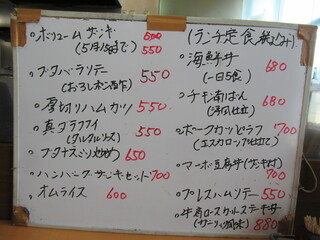 ボリュームザンギ 600
(5月15日まで) 550
ブタバラソテー
(おろしポン酢) 550
厚切りハムカツ 550
真ダラフライ
(タルタルソース) 550
ブタナス 650
ハンバーグ・ザンギセット 700
オムライス 600
(ランチ定食 税込み)
海鮮丼 680
(一日5食)
チキン南ばん 680
ポークカツピラフ 700
(エスカロップ仕立て)
マーボ豆腐丼(ザンギ付)
700
プレスハムソテー 550
牛肩ロースカットステーキ丼
(ガーリック風味) 880